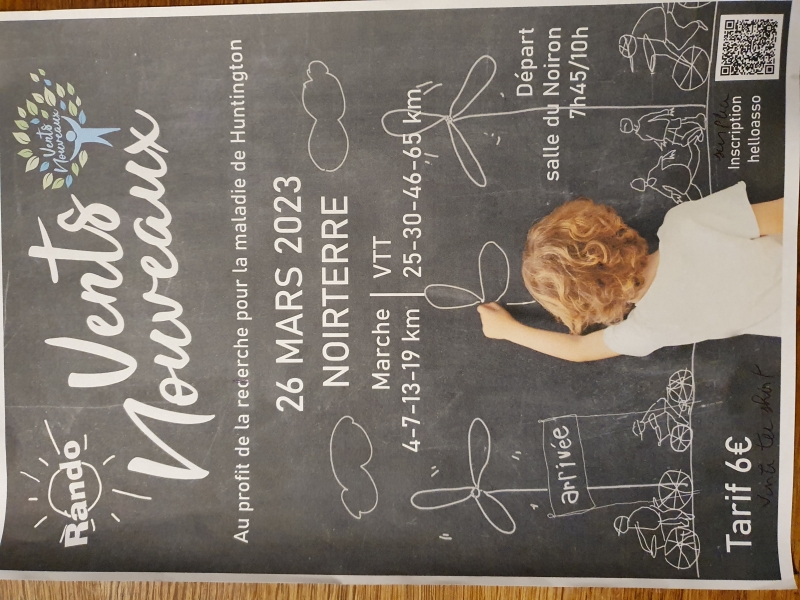 Rando
Vents
Nouveaux
Vents
Nouveaux
Au profit de la recherche pour la maladie de Huntington
26 MARS 2023
NOIRTERRE
Marche | VTT
4-7-13-19 km | 25-30-46-65 km
Départ
salle du Noiron
7h45/10h
arrivée
Tarif 6€
Vente tee shirt
Inscription
helloasso